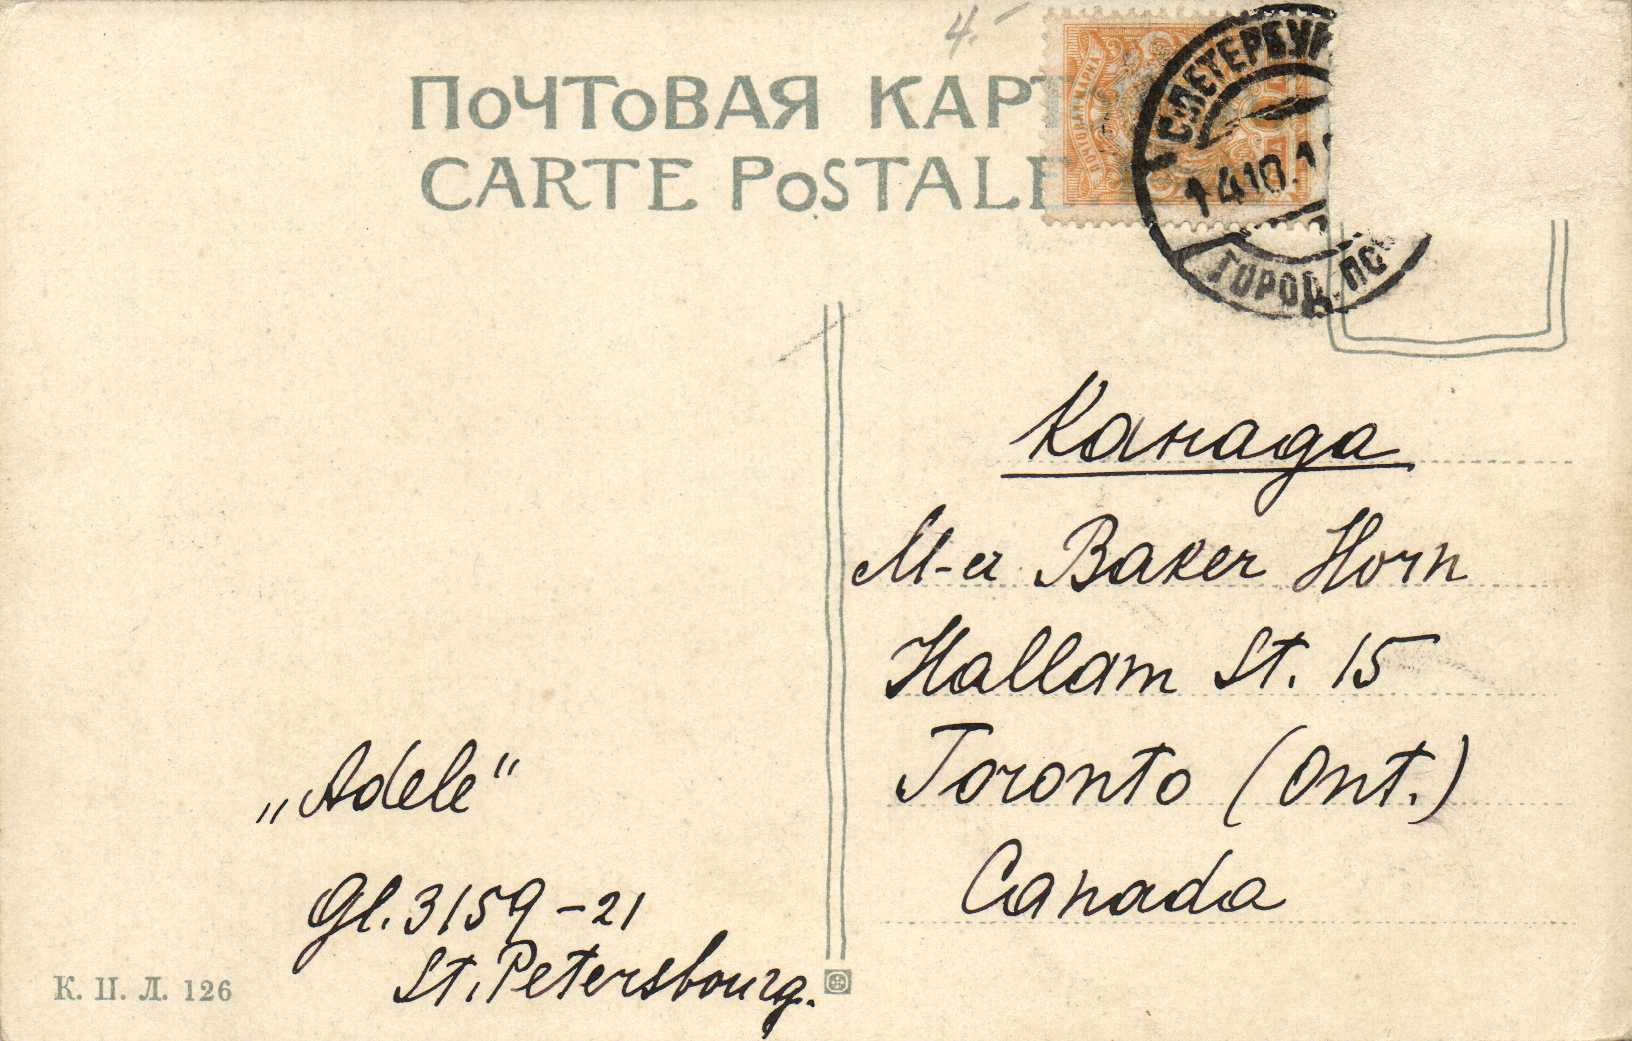 4.-
ПОЧТОВАЯ КАРТ
CARTE POSTALE
ПОЧТОВАЯ МАРКА
С.ПЕТЕРБУР
14.10.1
ГОРОД. ПО
Канада
M-r Baker Horn
Hallam St. 15
Toronto (Ont.)
Canada
„Adele“
Gl. 3159-21
St. Petersbourg.
К. Ц. Л. 126